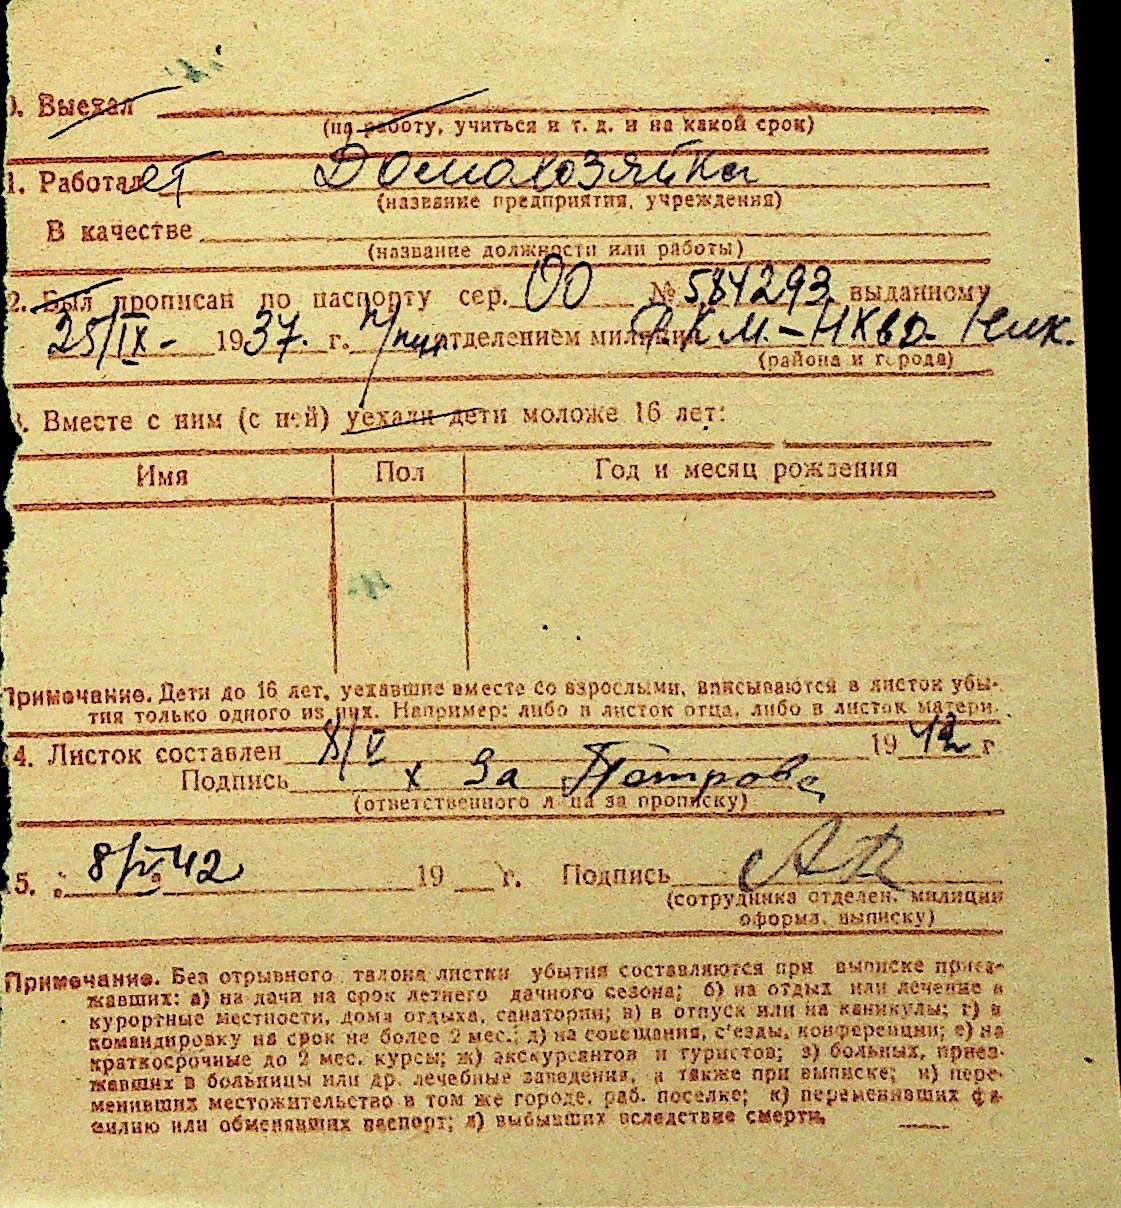 0. Выехал
(на работу, учиться и т. д. и на какой срок)
1. Работает Домахозяйка
(название предприятия, учреждения)
В качестве
(название должности или работы)
2. Был прописан по паспорту сер. ОО № 584293 выданному
25/IX - 1937. г. отделением милиции Р.К.М. - НКВД
(района и города)
3. Вместе с ним (с ней) уехали дети моложе 16 лет:
Имя Пол Год и месяц рождения
Примечание. Дети до 16 лет, уехавшие вместе со взрослыми, вписываются в листок убы-
тия только одного из них. Например: либо в листок отца, либо в листок матери.
14. Листок составлен 8/V 1942 г
Подпись х За Петрова
(ответственного лица за прописку)
15. 8/V 42 19 г. Подпись
(сотрудника отделен. милиции
оформл. выписку)
Примечание. Без отрывного талона листки убытия составляются при выписке приез-
жавших: а) на дачи на срок летнего дачного сезона; б) на отдых или лечение в
курортные местности, дома отдыха, санатории; в) в отпуск или на каникулы; г) в
командировку на срок не более 2 мес.; д) на совещания, с'езды, конференции; е) на
краткосрочные до 2 мес. курсы; ж) экскурсантов и туристов; з) больных, приез-
жавших в больницы или др. лечебные заведения, а также при выписке; и) пере-
менивших местожительство в том же городе, раб. поселке; к) переменивших фа-
милию или обменявших паспорт; л) выбывших вследствие смерти.